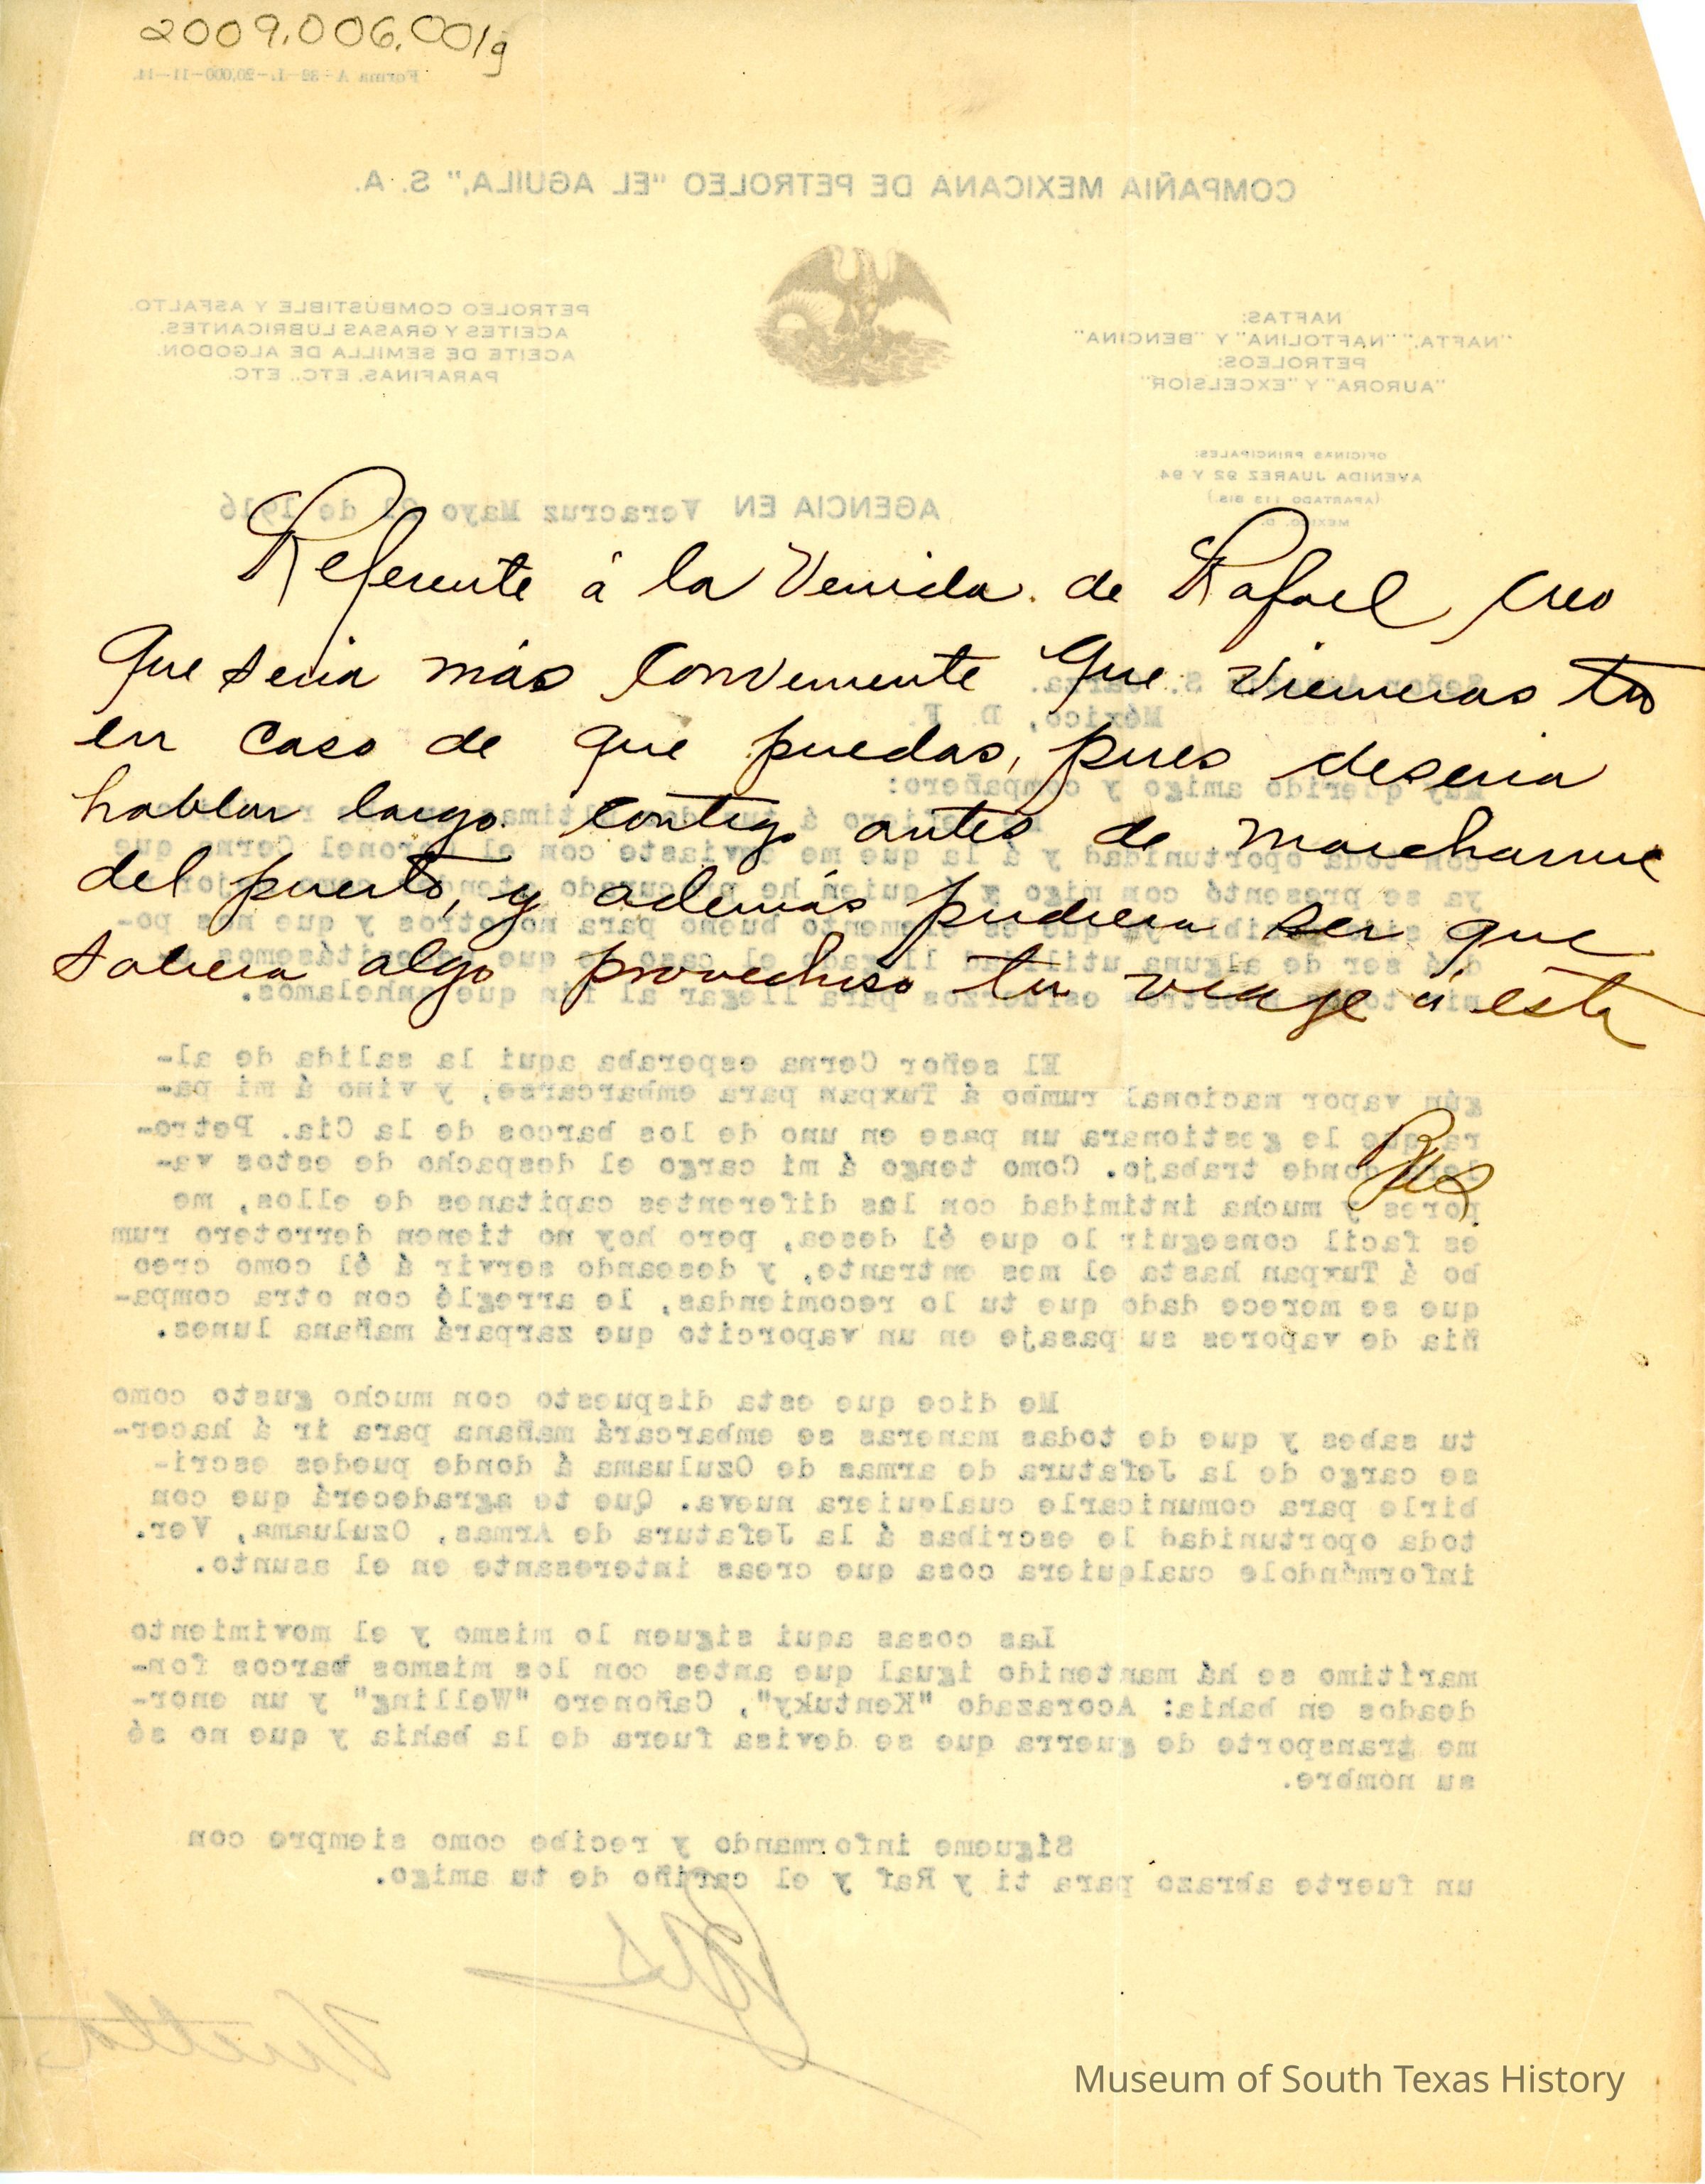 2009.006.001g
Referente á la Venida de Rafael, creo
que seria más conveniente que vinieras tu
en caso de que puedas, pues deseria
hablar largo contigo antes de marcharme
del puerto, y además pudiera ser que
saliera algo provechoso tu viaje á esta
Forma A-39-L-20,000-11-14.
COMPAÑIA MEXICANA DE PETROLEO "EL AGUILA," S. A.
NAFTAS:
"NAFTA," "NAFTOLINA" Y "BENCINA"
PETROLEOS:
"AURORA" Y "EXCELSIOR"
PETROLEO COMBUSTIBLE Y ASFALTO.
ACEITES Y GRASAS LUBRICANTES.
ACEITE DE SEMILLA DE ALGODON.
PARAFINAS, ETC., ETC.
OFICINAS PRINCIPALES:
AVENIDA JUAREZ 92 Y 94
(APARTADO 113 BIS.)
MEXICO, D.
AGENCIA EN Veracruz Mayo de 1916
Señor S. Garza.
México, D. F.
Muy querido amigo y compañero:
á tus dos ultimas
con toda oportunidad y á la que me enviaste con el Coronel Cerna que
ya se presentó con migo y á quien he procurado atender como mejor
sido posible ya que es elemento bueno para nosotros y que nos po-
drá ser de alguna utilidad llegado el caso de que necesitásemos
nuestros esfuerzos para llegar al fin que anhelamos.
El señor Cerna esperaba aqui la salida de al-
gún vapor nacional rumbo á Tuxpan para embarcarse, y vino á mi pa-
ra que le gestionara un pase en uno de los barcos de la Cia. Petro-
lera donde trabajo. Como tengo á mi cargo el despacho de estos va-
pores y mucha intimidad con los diferentes capitanes de ellos, me
es facil conseguir lo que él desea, pero hoy no tienen derrotero rum
bo á Tuxpan hasta el mes entrante, y deseando servir á él como creo
que se merece dado que tu lo recomiendas, le arreglé con otra compa-
ñia de vapores su pasaje en un vaporcito que zarpará mañana lunes.
Me dice que esta dispuesto con mucho gusto como
tu sabes y que de todas maneras se embarcará mañana para ir á hacer-
se cargo de la Jefatura de armas de Ozuluama á donde puedes escri-
birle para comunicarle cualquiera nueva. Que te agradecerá que con
toda oportunidad le escribas á la Jefatura de Armas, Ozuluama, Ver.
informándole cualquiera cosa que creas interesante en el asunto.
Las cosas aqui siguen lo mismo y el movimiento
marítimo se há mantenido igual que antes con los mismos barcos fon-
deados en bahia: Acorazado "Kentuky", Cañonero "Welling" y un enor-
me transporte de guerra que se devisa fuera de la bahia y que no sé
su nombre.
Sígueme informando y recibe como siempre con
un fuerte abrazo para ti y Raf y el cariño de tu amigo.
Vuelta
Museum of South Texas History